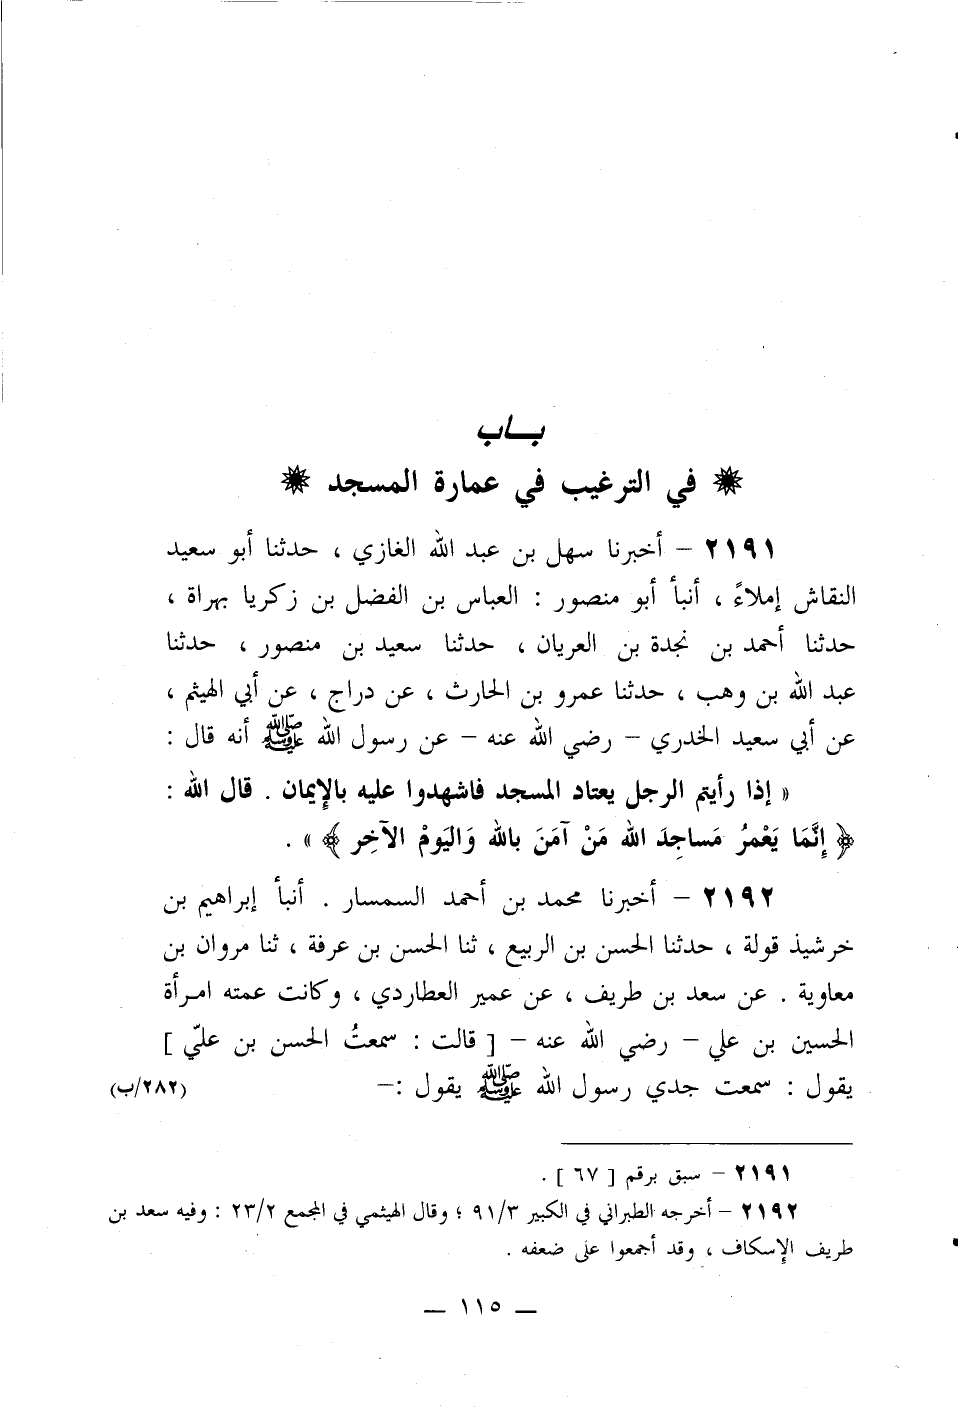 بـاب
في الترغيب في عمارة المسجد
٢١٩١ – أخبرنا سهل بن عبد الله الغازي ، حدثنا أبو سعيد
النقاش إملاءً ، أنبأ أبو منصور : العباس بن الفضل بن زكريا بهراة ،
حدثنا أحمد بن نجدة بن العريان ، حدثنا سعيد بن منصور ، حدثنا
عبد الله بن وهب ، حدثنا عمرو بن الحارث ، عن دراج ، عن أبي الهيثم ،
عن أبي سعيد الخدري – رضي الله عنه – عن رسول الله ﷺ أنه قال :
« إذا رأيتم الرجل يعتاد المسجد فاشهدوا عليه بالإيمان . قال الله :
﴿ إِنَّمَا يَعْمرُ مَساجِدَ الله مَنْ آمَنَ بالله وَاليَومْ الآخِر ﴾ » .
٢١٩٢ – أخبرنا محمد بن أحمد السمسار . أنبأ إبراهيم بن
خرشيذ قولة ، حدثنا الحسن بن الربيع ، ثنا الحسن بن عرفة ، ثنا مروان بن
معاوية . عن سعد بن طريف ، عن عمير العطاردي ، وكانت عمته امرأة
الحسين بن علي – رضي الله عنه – [ قالت : سمعتُ الحسن بن عليّ ]
يقول : سمعت جدي رسول الله ﷺ يقول :– (٢٨٢/ب)
٢١٩١ – سبق برقم [ ٦٧ ] .
٢١٩٢ – أخرجه الطبراني في الكبير ٩١/٣ ؛ وقال الهيثمي في المجمع ٢٣/٢ : وفيه سعد بن
طريف الإسكاف ، وقد أجمعوا على ضعفه .
— ١١٥ —